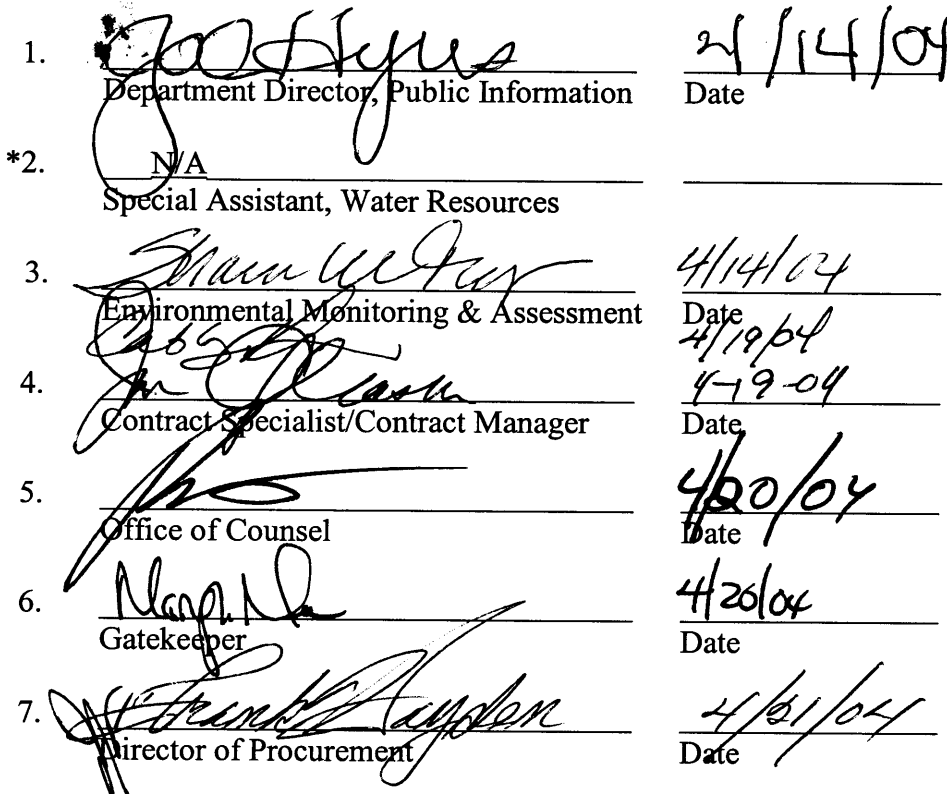 1. 4/14/04
Department Director, Public Information Date
*2. N/A
Special Assistant, Water Resources
3. 4/14/04
Environmental Monitoring & Assessment Date
4/19/04
4. 4-19-04
Contract Specialist/Contract Manager Date
5. 4/20/04
Office of Counsel Date
6. 4/20/04
Gatekeeper Date
7. Frank Hayden 4/21/04
Director of Procurement Date